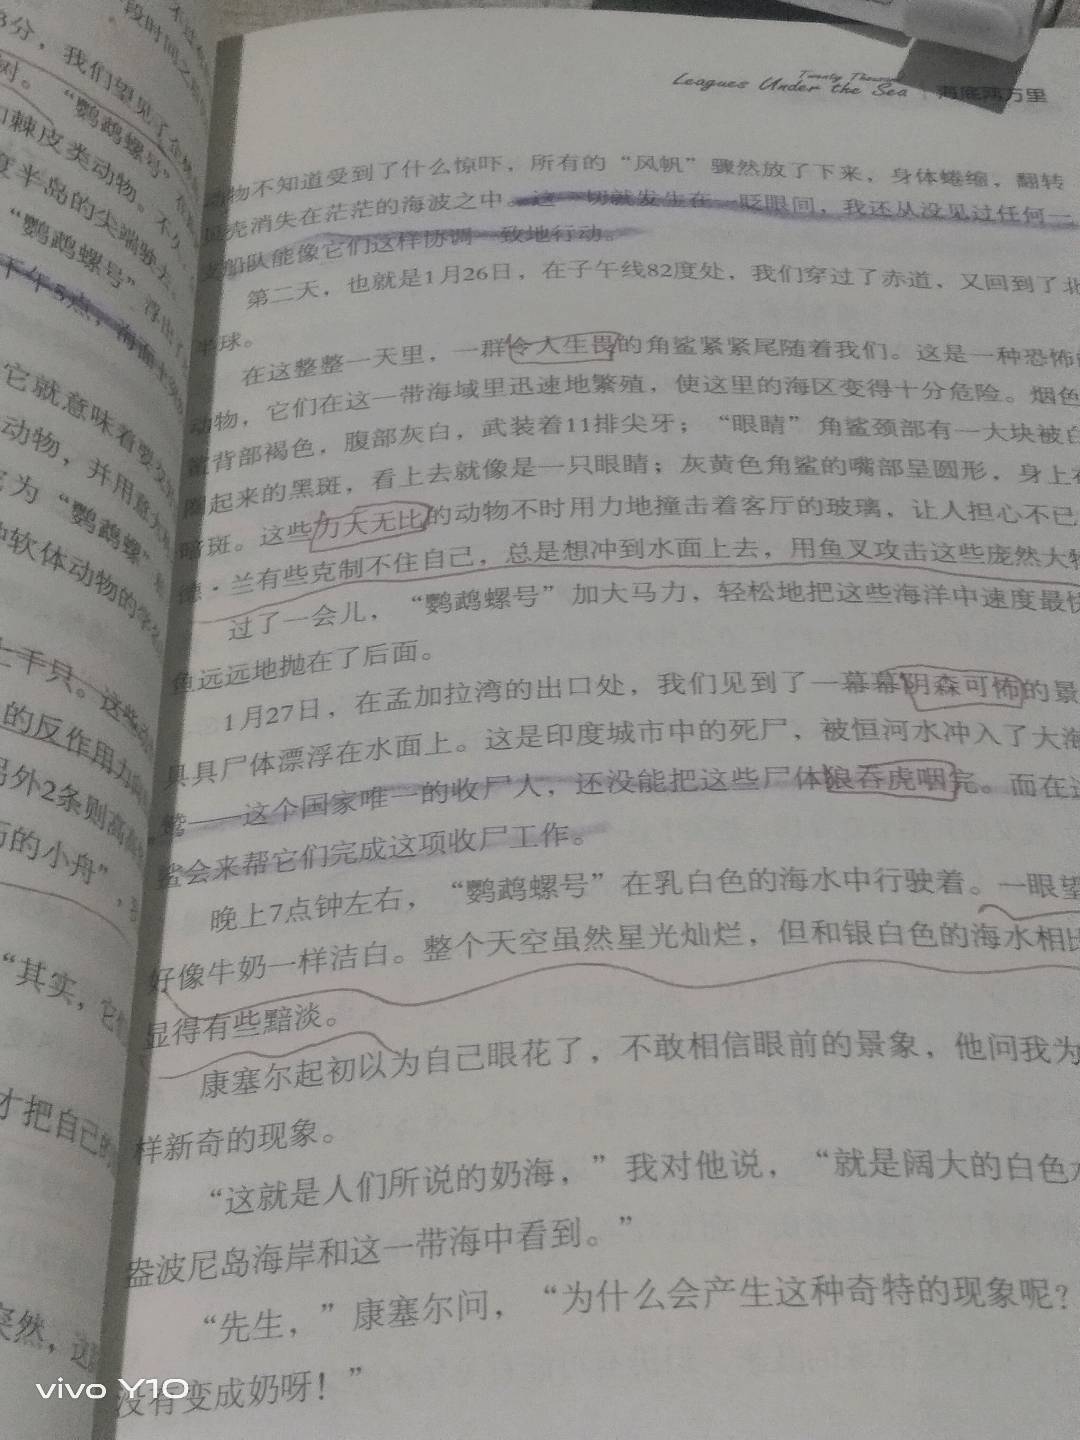 3分，我们望见了
树。“鹦鹉螺号”
棘皮类动物。不久
半岛的尖端驶去。
“鹦鹉螺号”浮出
下午5点，海面
它就意味着要
动物，并用意大
为“鹦鹉螺”
软体动物的学名
上千只。这些
的反作用力
另外2条则高高
的小舟”，
“其实，它
才把自己的
突然，
Twenty Thousand
Leagues Under the Sea 海底两万里
动物不知道受到了什么惊吓，所有的“风帆”骤然放了下来，身体蜷缩，翻转
贝壳消失在茫茫的海波之中。这一切就发生在一眨眼间，我还从没见过任何一
支船队能像它们这样协调一致地行动。
第二天，也就是1月26日，在子午线82度处，我们穿过了赤道，又回到了北
半球。
在这整整一天里，一群令人生畏的角鲨紧紧尾随着我们。这是一种恐怖
动物，它们在这一带海域里迅速地繁殖，使这里的海区变得十分危险。烟色
鲨背部褐色，腹部灰白，武装着11排尖牙；“眼睛”角鲨颈部有一大块被白
圈起来的黑斑，看上去就像是一只眼睛；灰黄色角鲨的嘴部呈圆形，身上有
暗斑。这些力大无比的动物不时用力地撞击着客厅的玻璃，让人担心不已
德·兰有些克制不住自己，总是想冲到水面上去，用鱼叉攻击这些庞然大物
过了一会儿，“鹦鹉螺号”加大马力，轻松地把这些海洋中速度最快
鱼远远地抛在了后面。
1月27日，在孟加拉湾的出口处，我们见到了一幕幕阴森可怖的景
具具尸体漂浮在水面上。这是印度城市中的死尸，被恒河水冲入了大海
鹫——这个国家唯一的收尸人，还没能把这些尸体狼吞虎咽完。而在这
鲨会来帮它们完成这项收尸工作。
晚上7点钟左右，“鹦鹉螺号”在乳白色的海水中行驶着。一眼望
好像牛奶一样洁白。整个天空虽然星光灿烂，但和银白色的海水相比
显得有些黯淡。
康塞尔起初以为自己眼花了，不敢相信眼前的景象，他问我为
样新奇的现象。
“这就是人们所说的奶海，”我对他说，“就是阔大的白色
盎波尼岛海岸和这一带海中看到。”
“先生，”康塞尔问，“为什么会产生这种奇特的现象呢？
没有变成奶呀！”
vivo Y10